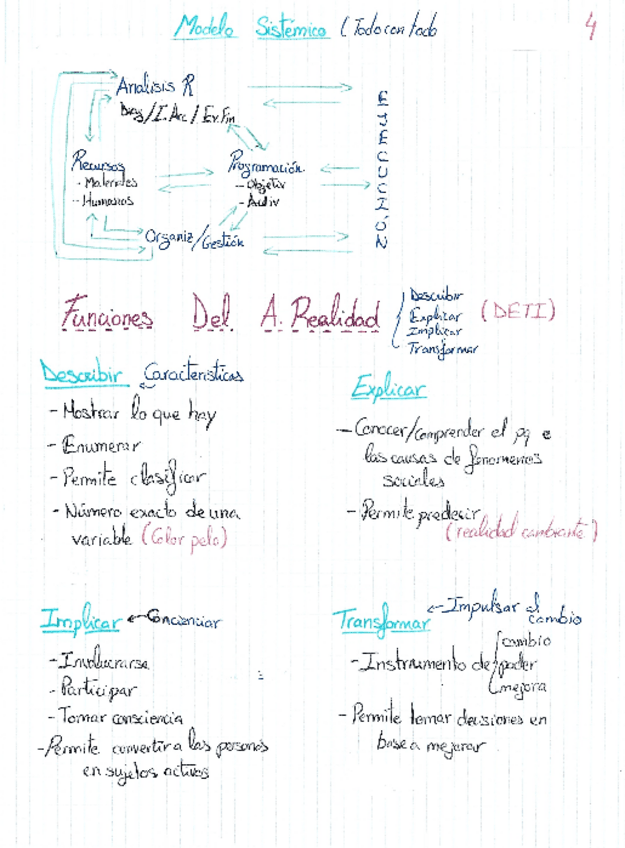 Modelo Sistémico (Todo con todo
4
Analisis R
Diag/I. Arc/Ev. Fin
Recursos
- Materiales
- Humanos
Programación
- Objetiv
- Activ
Organiz/Gestión
EJECUCIÓN
Funciones Del A. Realidad
Describir
Explicar
Implicar
Transformar
(DETI)
Describir Características
- Mostrar lo que hay
- Enumerar
- Permite clasificar
- Número exacto de una
variable (Color pelo)
Explicar
- Conocer/Comprender el pq e
las causas de fenomenos
sociales
- Permite predecir
(realidad cambiante)
Implicar ← Concienciar
- Involucrarse
- Participar
- Tomar consciencia
- Permite convertir a las personas
en sujetos activos
Transformar ← Impulsar el
cambio
- Instrumento de
cambio
poder
mejora
- Permite tomar decisiones en
base a mejorar